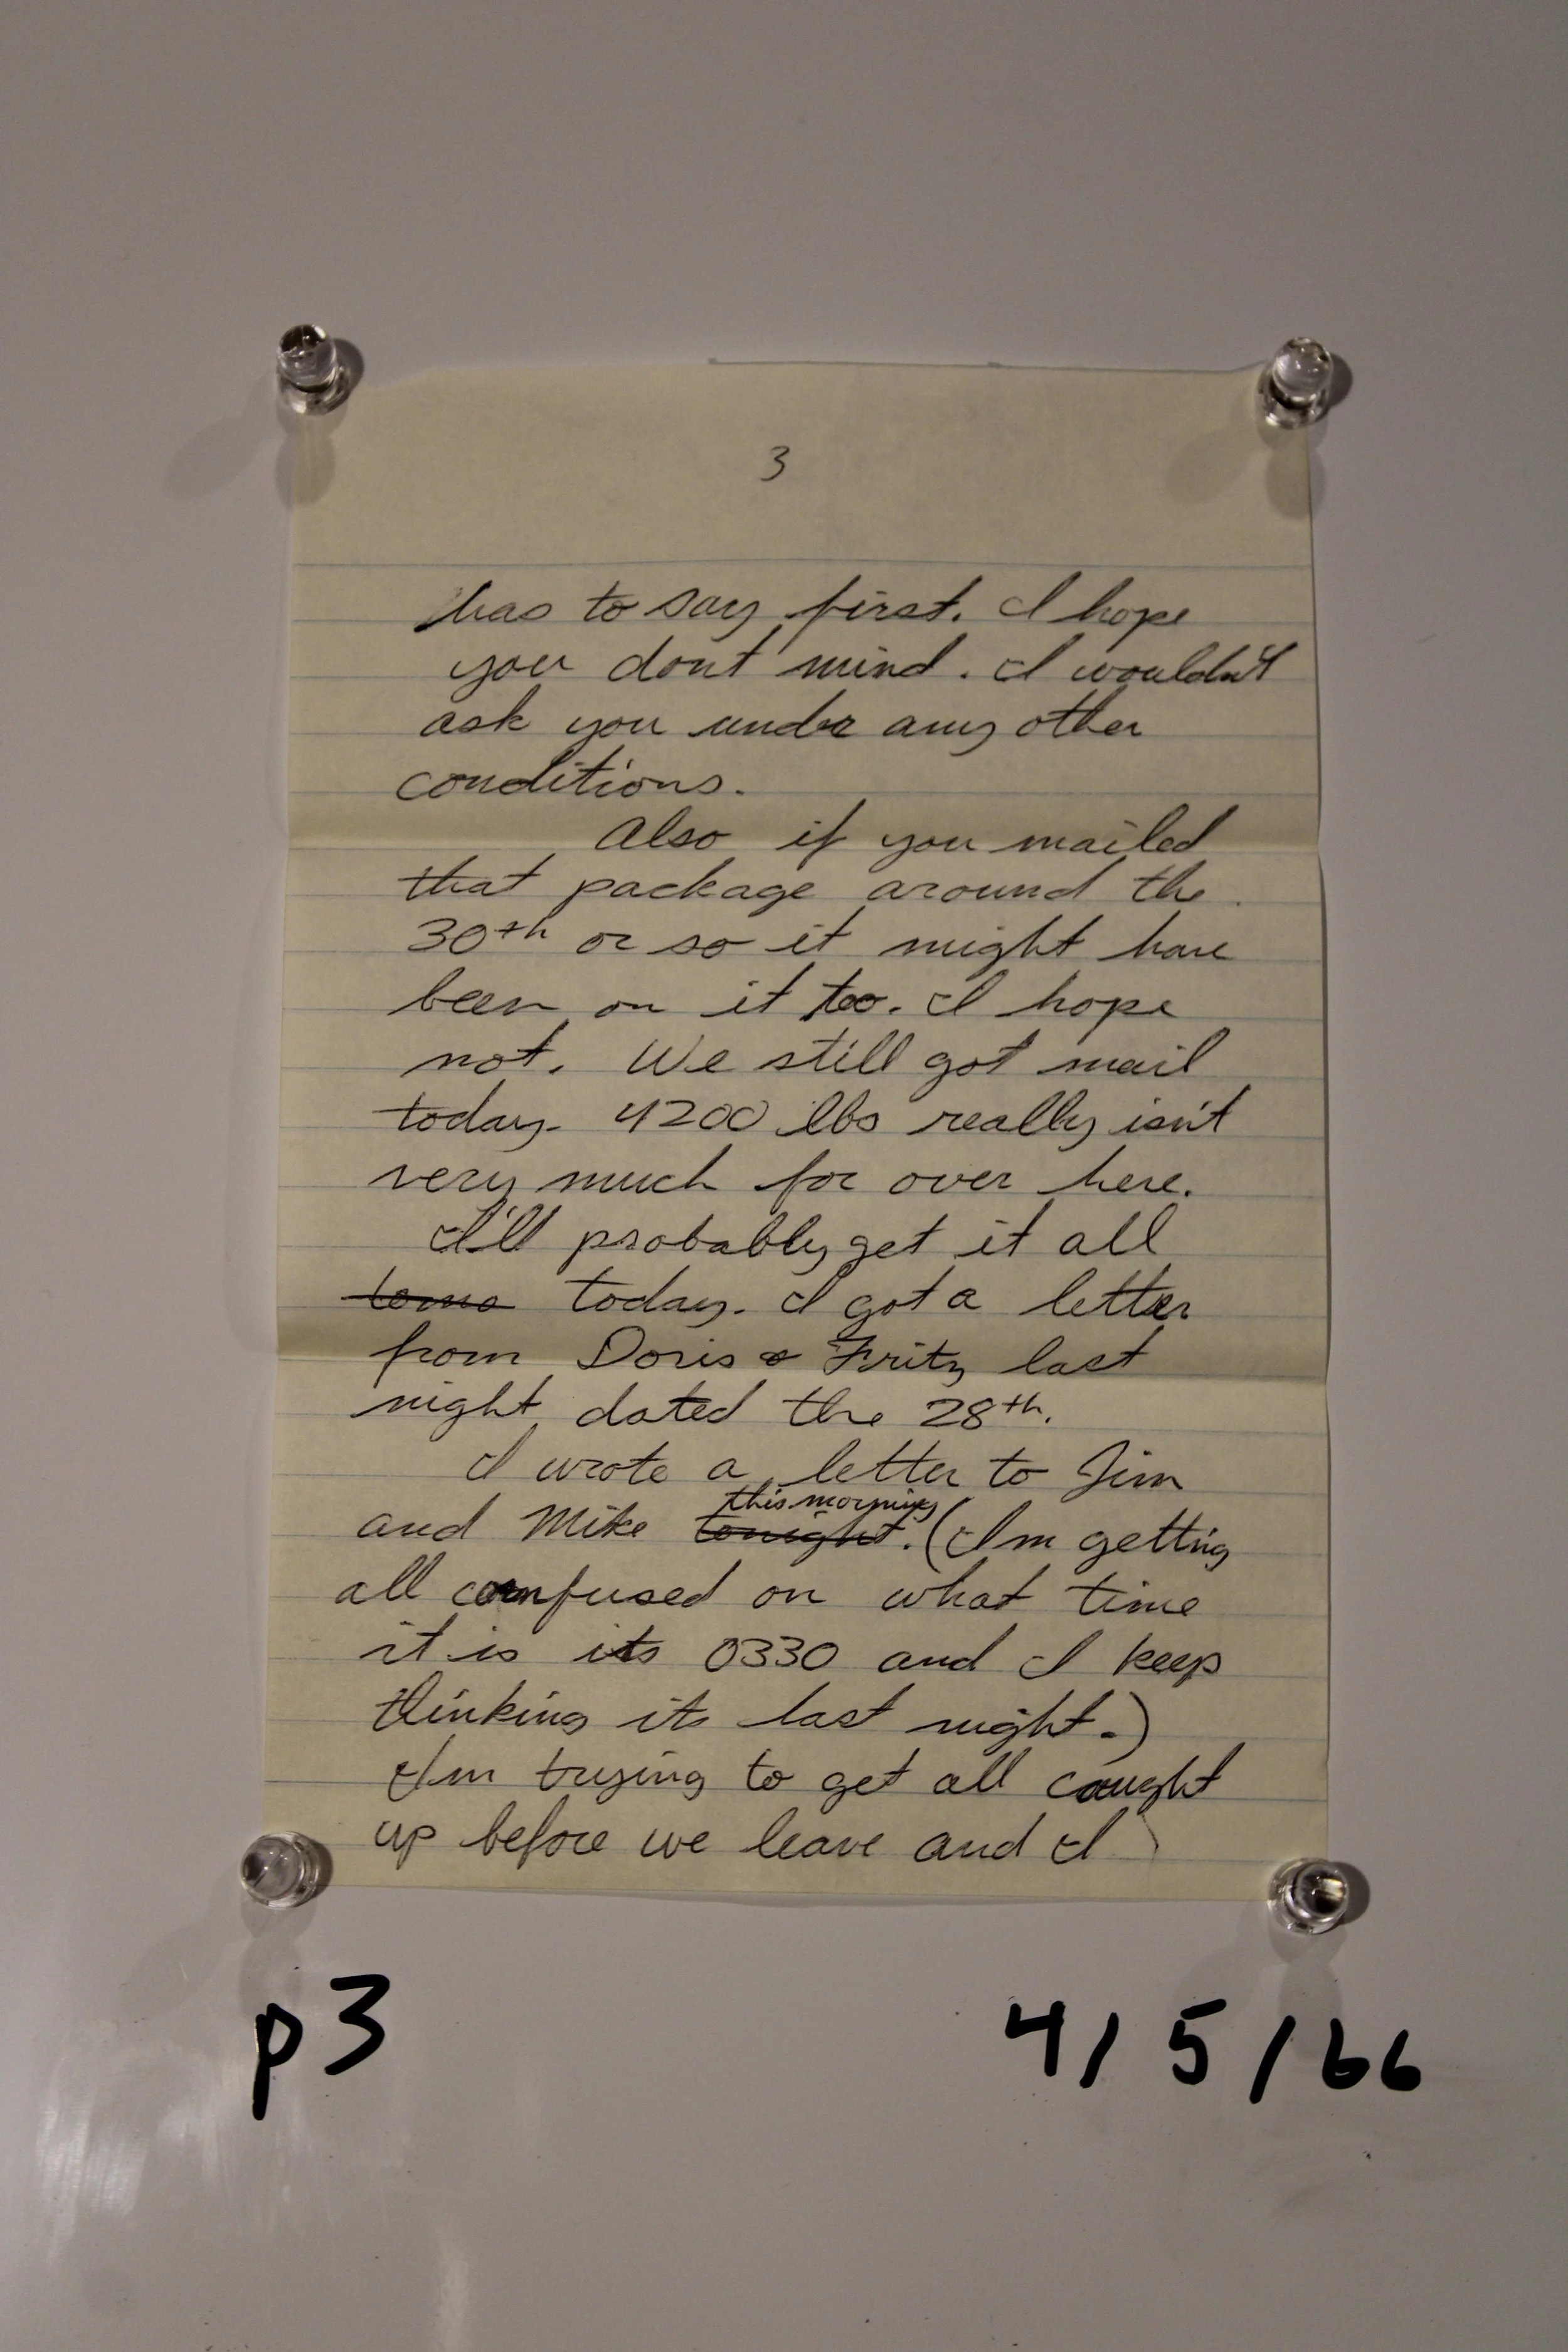 3
has to say first. I hope
you dont mind. I wouldn't
ask you under any other
conditions.
Also if you mailed
that package around the
30th or so it might have
been on it too. I hope
not. We still got mail
today. 4200 lbs really isn't
very much for over here.
I'll probably get it all
today. I got a letter
from Doris & Fritz last
night dated the 28th.
I wrote a letter to Jim
this morning
and Mike tonight. (Im getting
all confused on what time
it is its 0330 and I keep
thinking its last night.)
Im trying to get all caught
up before we leave and I
p3
4/5/66